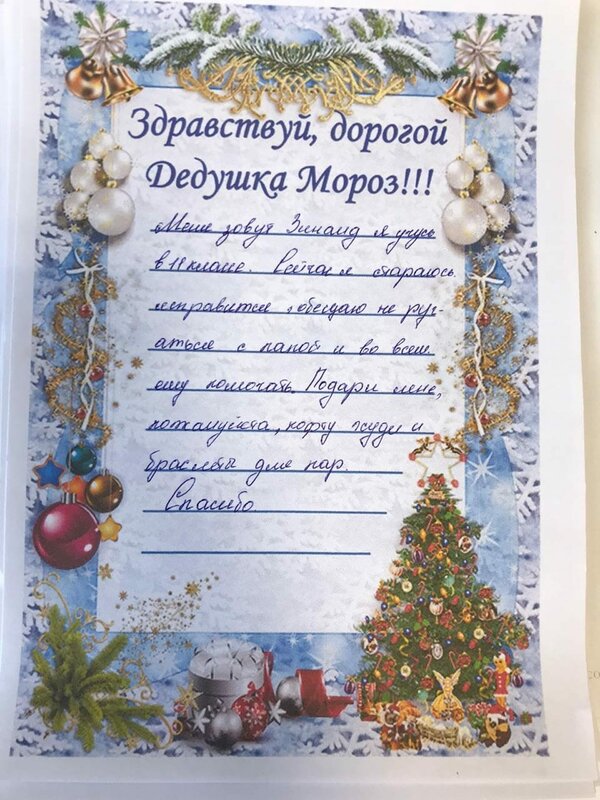 Здравствуй, дорогой
Дедушка Мороз!!!
Меня зовут Зинаид я учусь
в 11 классе. Сейчас я стараюсь
исправится, обещаю не руг-
аться с папой и во всем
ему помогать. Подари мне,
пожалуйста, кофту худи и
браслеты для пар.
Спасибо